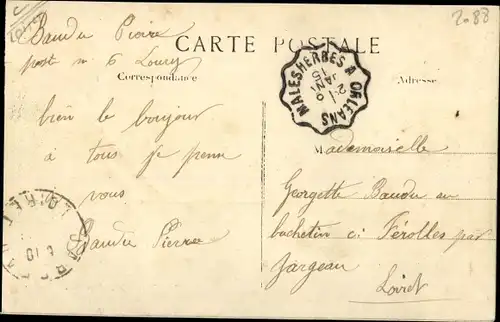 2088
Baudu Pierre
poste n 6 Loury
CARTE POSTALE
Correspondance
Adresse
MALESHERBES A ORLEANS
JANV
15
bien le bonjour
à tous je pense
vous
Baudu Pierre
Mademoiselle
Georgette Baudu au
c: Férolles par
Jargeau
Loiret